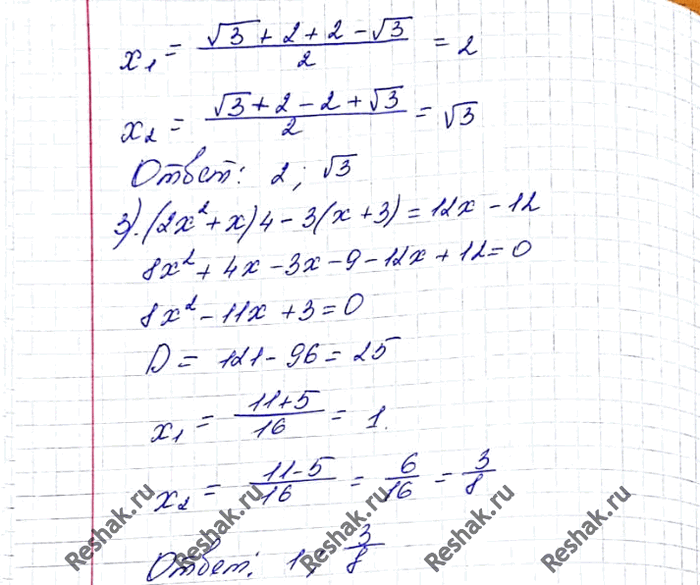 x₁ = (√3 + 2 + 2 − √3)/2 = 2
x₂ = (√3 + 2 − 2 + √3)/2 = √3
Ответ: 2; √3
3). (2x² + x)4 − 3(x + 3) = 12x − 12
8x² + 4x − 3x − 9 − 12x + 12 = 0
8x² − 11x + 3 = 0
D = 121 − 96 = 25
x₁ = (11+5)/16 = 1.
x₂ = (11−5)/16 = 6/16 = 3/8
Ответ: 1; 3/8
Reshak.ru Reshak.ru Reshak.ru Reshak.ru Reshak.ru